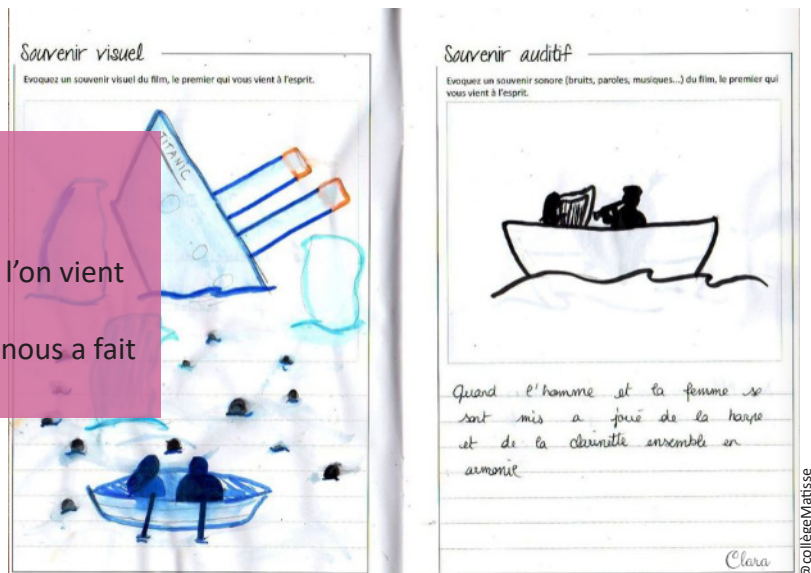 Souvenir visuel
Evoquez un souvenir visuel du film, le premier qui vous vient à l'esprit.
TITANIC
l'on vient
nous a fait
Souvenir auditif
Evoquez un souvenir sonore (bruits, paroles, musiques...) du film, le premier qui
vous vient à l'esprit.
Quand l'homme et la femme se
sont mis a joué de la harpe
et de la clarinette ensemble en
armonie
Clara
©collègeMatisse